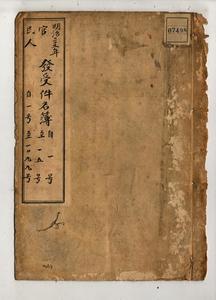 明治三年
發受件名簿
官 自一号 至一五号
民人 自一号 至一〇九九号
07498